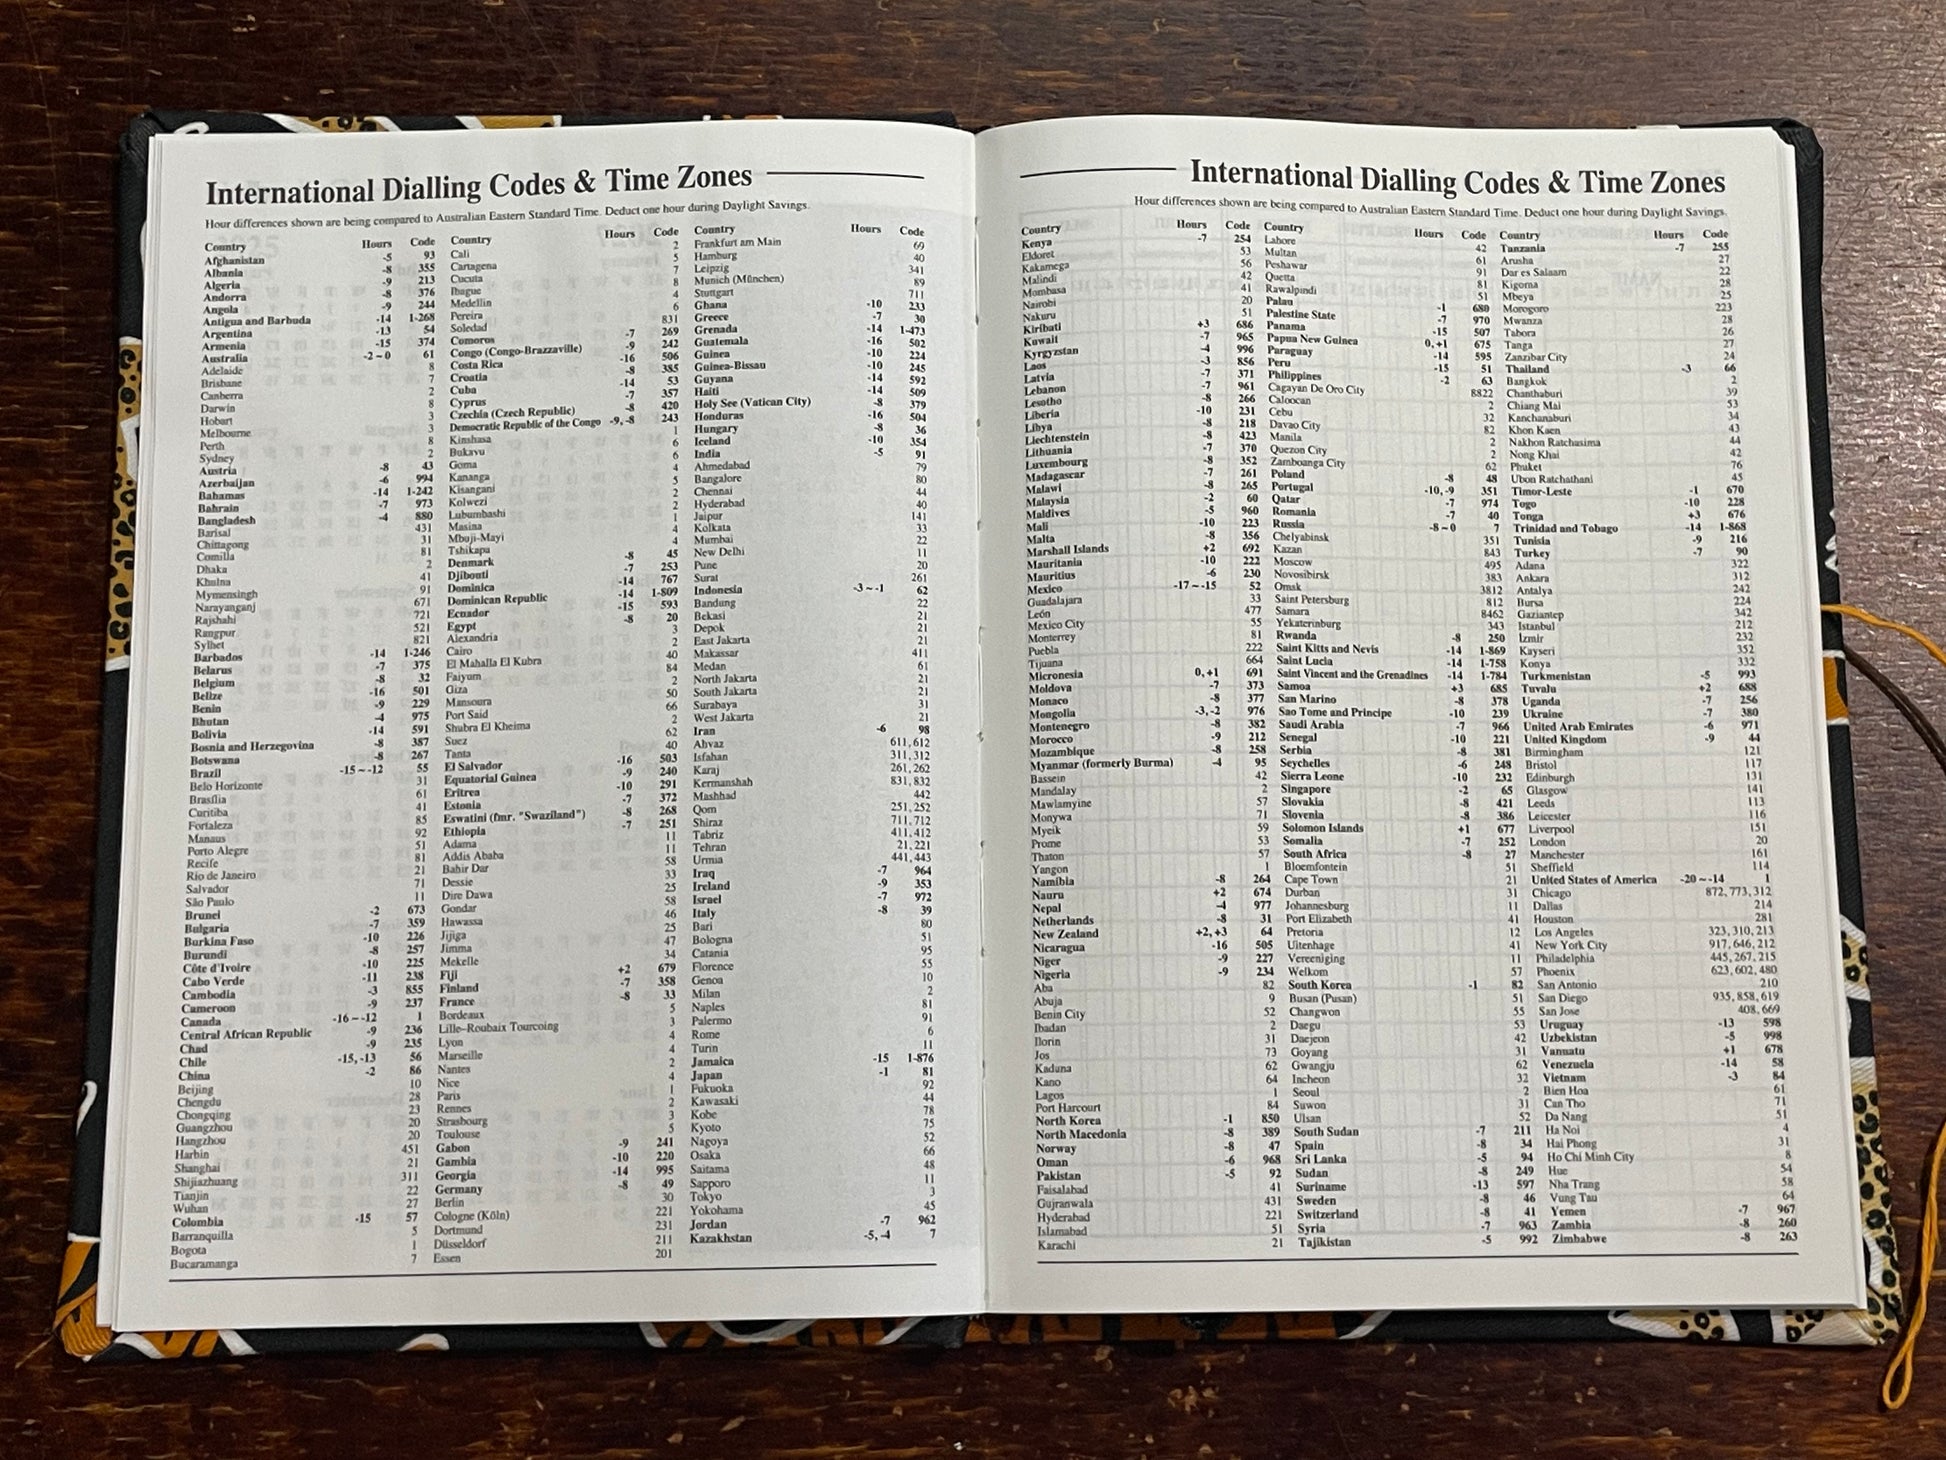 International Dialling Codes & Time Zones
Hour differences shown are being compared to Australian Eastern Standard Time. Deduct one hour during Daylight Savings.
Country Hours Code
Afghanistan -5 93
Albania -8 355
Algeria -9 213
Andorra -8 376
Angola -9 244
Antigua and Barbuda -14 1-268
Argentina -13 54
Armenia -15 374
Australia -2~0 61
Adelaide 8
Brisbane 7
Canberra 2
Darwin 8
Hobart 3
Melbourne 3
Perth 8
Sydney 2
Austria -8 43
Azerbaijan -6 994
Bahamas -14 1-242
Bahrain -7 973
Bangladesh -4 880
Barisal 431
Chittagong 31
Comilla 81
Dhaka 2
Khulna 41
Mymensingh 91
Narayanganj 671
Rajshahi 721
Rangpur 521
Sylhet 821
Barbados -14 1-246
Belarus -7 375
Belgium -8 32
Belize -16 501
Benin -9 229
Bhutan -4 975
Bolivia -14 591
Bosnia and Herzegovina -8 387
Botswana -8 267
Brazil -15~-12 55
Belo Horizonte 31
Brasília 61
Curitiba 41
Fortaleza 85
Manaus 92
Porto Alegre 51
Recife 81
Rio de Janeiro 21
Salvador 71
São Paulo 11
Brunei -2 673
Bulgaria -7 359
Burkina Faso -10 226
Burundi -8 257
Côte d'Ivoire -10 225
Cabo Verde -11 238
Cambodia -3 855
Cameroon -9 237
Canada -16~-12 1
Central African Republic -9 236
Chad -9 235
Chile -15, -13 56
China -2 86
Beijing 10
Chengdu 28
Chongqing 23
Guangzhou 20
Hangzhou 20
Harbin 451
Shanghai 21
Shijiazhuang 311
Tianjin 22
Wuhan 27
Colombia -15 57
Barranquilla 5
Bogota 1
Bucaramanga 7
Country Hours Code
Cali 2
Cartagena 5
Cucuta 7
Ibague 8
Medellin 4
Pereira 6
Soledad 831
Comoros -7 269
Congo (Congo-Brazzaville) -9 242
Costa Rica -16 506
Croatia -8 385
Cuba -14 53
Cyprus -7 357
Czechia (Czech Republic) -8 420
Democratic Republic of the Congo -9, -8 243
Kinshasa 1
Bukavu 6
Goma 6
Kananga 4
Kisangani 5
Kolwezi 2
Lubumbashi 2
Masina 1
Mbuji-Mayi 4
Tshikapa 4
Denmark -8 45
Djibouti -7 253
Dominica -14 767
Dominican Republic -14 1-809
Ecuador -15 593
Egypt -8 20
Alexandria 3
Cairo 2
El Mahalla El Kubra 40
Faiyum 84
Giza 2
Mansoura 50
Port Said 66
Shubra El Kheima 2
Suez 62
Tanta 40
El Salvador -16 503
Equatorial Guinea -9 240
Eritrea -10 291
Estonia -7 372
Eswatini (fmr. "Swaziland") -8 268
Ethiopia -7 251
Adama 11
Addis Ababa 11
Bahir Dar 58
Dessie 33
Dire Dawa 25
Gondar 58
Hawassa 46
Jijiga 25
Jimma 47
Mekelle 34
Fiji +2 679
Finland -7 358
France -8 33
Bordeaux 5
Lille–Roubaix Tourcoing 3
Lyon 4
Marseille 4
Nantes 2
Nice 4
Paris 1
Rennes 2
Strasbourg 3
Toulouse 5
Gabon -9 241
Gambia -10 220
Georgia -14 995
Germany -8 49
Berlin 30
Cologne (Köln) 221
Dortmund 231
Düsseldorf 211
Essen 201
Country Hours Code
Frankfurt am Main 69
Hamburg 40
Leipzig 341
Munich (München) 89
Stuttgart 711
Ghana -10 233
Greece -7 30
Grenada -14 1-473
Guatemala -16 502
Guinea -10 224
Guinea-Bissau -10 245
Guyana -14 592
Haiti -14 509
Holy See (Vatican City) -8 379
Honduras -16 504
Hungary -8 36
Iceland -10 354
India -5 91
Ahmedabad 79
Bangalore 80
Chennai 44
Hyderabad 40
Jaipur 141
Kolkata 33
Mumbai 22
New Delhi 11
Pune 20
Surat 261
Indonesia -3~-1 62
Bandung 22
Bekasi 21
Depok 21
East Jakarta 21
Makassar 411
Medan 61
North Jakarta 21
South Jakarta 21
Surabaya 31
West Jakarta 21
Iran -6 98
Ahvaz 611, 612
Isfahan 311, 312
Karaj 261, 262
Kermanshah 831, 832
Mashhad 442
Qom 251, 252
Shiraz 711, 712
Tabriz 411, 412
Tehran 21, 221
Urmia 441, 443
Iraq -7 964
Ireland -9 353
Israel -7 972
Italy -8 39
Bari 80
Bologna 51
Catania 95
Florence 55
Genoa 10
Milan 2
Naples 81
Palermo 91
Rome 6
Turin 11
Jamaica -15 1-876
Japan -1 81
Fukuoka 92
Kawasaki 44
Kobe 78
Kyoto 75
Nagoya 52
Osaka 66
Saitama 48
Sapporo 11
Tokyo 3
Yokohama 45
Jordan -7 962
Kazakhstan -5, -4 7
International Dialling Codes & Time Zones
Hour differences shown are being compared to Australian Eastern Standard Time. Deduct one hour during Daylight Savings.
Country Hours Code
Kenya -7 254
Eldoret 53
Kakamega 56
Malindi 42
Mombasa 41
Nairobi 20
Nakuru 51
Kiribati +3 686
Kuwait -7 965
Kyrgyzstan -4 996
Laos -3 856
Latvia -7 371
Lebanon -7 961
Lesotho -8 266
Liberia -10 231
Libya -8 218
Liechtenstein -8 423
Lithuania -7 370
Luxembourg -8 352
Madagascar -7 261
Malawi -8 265
Malaysia -2 60
Maldives -5 960
Mali -10 223
Malta -8 356
Marshall Islands +2 692
Mauritania -10 222
Mauritius -6 230
Mexico -17~-15 52
Guadalajara 33
León 477
Mexico City 55
Monterrey 81
Puebla 222
Tijuana 664
Micronesia 0, +1 691
Moldova -7 373
Monaco -8 377
Mongolia -3, -2 976
Montenegro -8 382
Morocco -9 212
Mozambique -8 258
Myanmar (formerly Burma) -4 95
Bassein 42
Mandalay 2
Mawlamyine 57
Monywa 71
Myeik 59
Prome 53
Thaton 57
Yangon 1
Namibia -8 264
Nauru +2 674
Nepal -4 977
Netherlands -8 31
New Zealand +2, +3 64
Nicaragua -16 505
Niger -9 227
Nigeria -9 234
Aba 82
Abuja 9
Benin City 52
Ibadan 2
Ilorin 31
Jos 73
Kaduna 62
Kano 64
Lagos 1
Port Harcourt 84
North Korea -1 850
North Macedonia -8 389
Norway -8 47
Oman -6 968
Pakistan -5 92
Faisalabad 41
Gujranwala 431
Hyderabad 221
Islamabad 51
Karachi 21
Country Hours Code
Lahore 42
Multan 61
Peshawar 91
Quetta 81
Rawalpindi 51
Palau -1 680
Palestine State -7 970
Panama -15 507
Papua New Guinea 0, +1 675
Paraguay -14 595
Peru -15 51
Philippines -2 63
Cagayan De Oro City 8822
Caloocan 2
Cebu 32
Davao City 82
Manila 2
Quezon City 2
Zamboanga City 62
Poland -8 48
Portugal -10, -9 351
Qatar -7 974
Romania -7 40
Russia -8~0 7
Chelyabinsk 351
Kazan 843
Moscow 495
Novosibirsk 383
Omsk 3812
Saint Petersburg 812
Samara 8462
Yekaterinburg 343
Rwanda -8 250
Saint Kitts and Nevis -14 1-869
Saint Lucia -14 1-758
Saint Vincent and the Grenadines -14 1-784
Samoa +3 685
San Marino -8 378
Sao Tome and Principe -10 239
Saudi Arabia -7 966
Senegal -10 221
Serbia -8 381
Seychelles -6 248
Sierra Leone -10 232
Singapore -2 65
Slovakia -8 421
Slovenia -8 386
Solomon Islands +1 677
Somalia -7 252
South Africa -8 27
Bloemfontein 51
Cape Town 21
Durban 31
Johannesburg 11
Port Elizabeth 41
Pretoria 12
Uitenhage 41
Vereeniging 11
Welkom 57
South Korea -1 82
Busan (Pusan) 51
Changwon 55
Daegu 53
Daejeon 42
Goyang 31
Gwangju 62
Incheon 32
Seoul 2
Suwon 31
Ulsan 52
South Sudan -7 211
Spain -8 34
Sri Lanka -5 94
Sudan -8 249
Suriname -13 597
Sweden -8 46
Switzerland -8 41
Syria -7 963
Tajikistan -5 992
Country Hours Code
Tanzania -7 255
Arusha 27
Dar es Salaam 22
Kigoma 28
Mbeya 25
Morogoro 223
Mwanza 28
Tabora 26
Tanga 27
Zanzibar City 24
Thailand -3 66
Bangkok 2
Chanthaburi 39
Chiang Mai 53
Kanchanaburi 34
Khon Kaen 43
Nakhon Ratchasima 44
Nong Khai 42
Phuket 76
Ubon Ratchathani 45
Timor-Leste -1 670
Togo -10 228
Tonga +3 676
Trinidad and Tobago -14 1-868
Tunisia -9 216
Turkey -7 90
Adana 322
Ankara 312
Antalya 242
Bursa 224
Gaziantep 342
Istanbul 212
Izmir 232
Kayseri 352
Konya 332
Turkmenistan -5 993
Tuvalu +2 688
Uganda -7 256
Ukraine -7 380
United Arab Emirates -6 971
United Kingdom -9 44
Birmingham 121
Bristol 117
Edinburgh 131
Glasgow 141
Leeds 113
Leicester 116
Liverpool 151
London 20
Manchester 161
Sheffield 114
United States of America -20~-14 1
Chicago 872, 773, 312
Dallas 214
Houston 281
Los Angeles 323, 310, 213
New York City 917, 646, 212
Philadelphia 445, 267, 215
Phoenix 623, 602, 480
San Antonio 210
San Diego 935, 858, 619
San Jose 408, 669
Uruguay -13 598
Uzbekistan -5 998
Vanuatu +1 678
Venezuela -14 58
Vietnam -3 84
Bien Hoa 61
Can Tho 71
Da Nang 51
Ha Noi 4
Hai Phong 31
Ho Chi Minh City 8
Hue 54
Nha Trang 58
Vung Tau 64
Yemen -7 967
Zambia -8 260
Zimbabwe -8 263